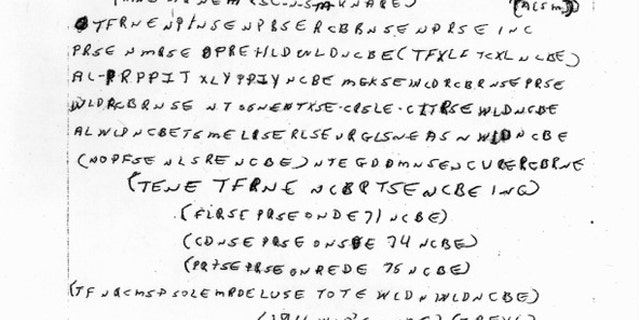 (ALSM)
TFRNENPINSENPBSERCBBNSENPRSEINC
PRSENMRSEOPREHLDWLDNCBE(TFXLFTCXLNCBE)
AL-PRPPITXLYPPIYNCBEMGKSEWLDRCBRNSEPRSE
WLDRCBRNSENTSGNENTXSE-CRSLE-CITRSEWLDNCBE
ALWLDNCBETSMELRSERLSEURGLSNEASNWLDNCBE
(NOPFSENLSRENCBE)NTEGDDMNSENCURERCBRNE
(TENETFRNENCBRTSENCBEING)
(FLRSEPRSEONDE71NCBE)
(CDNSEPRSEONSDE74NCBE)
(PRTSEPRSEONREDE75NCBE)
(TFNQCMSPSOLEMRDELUSETOTEWLDNWLDNCBE)